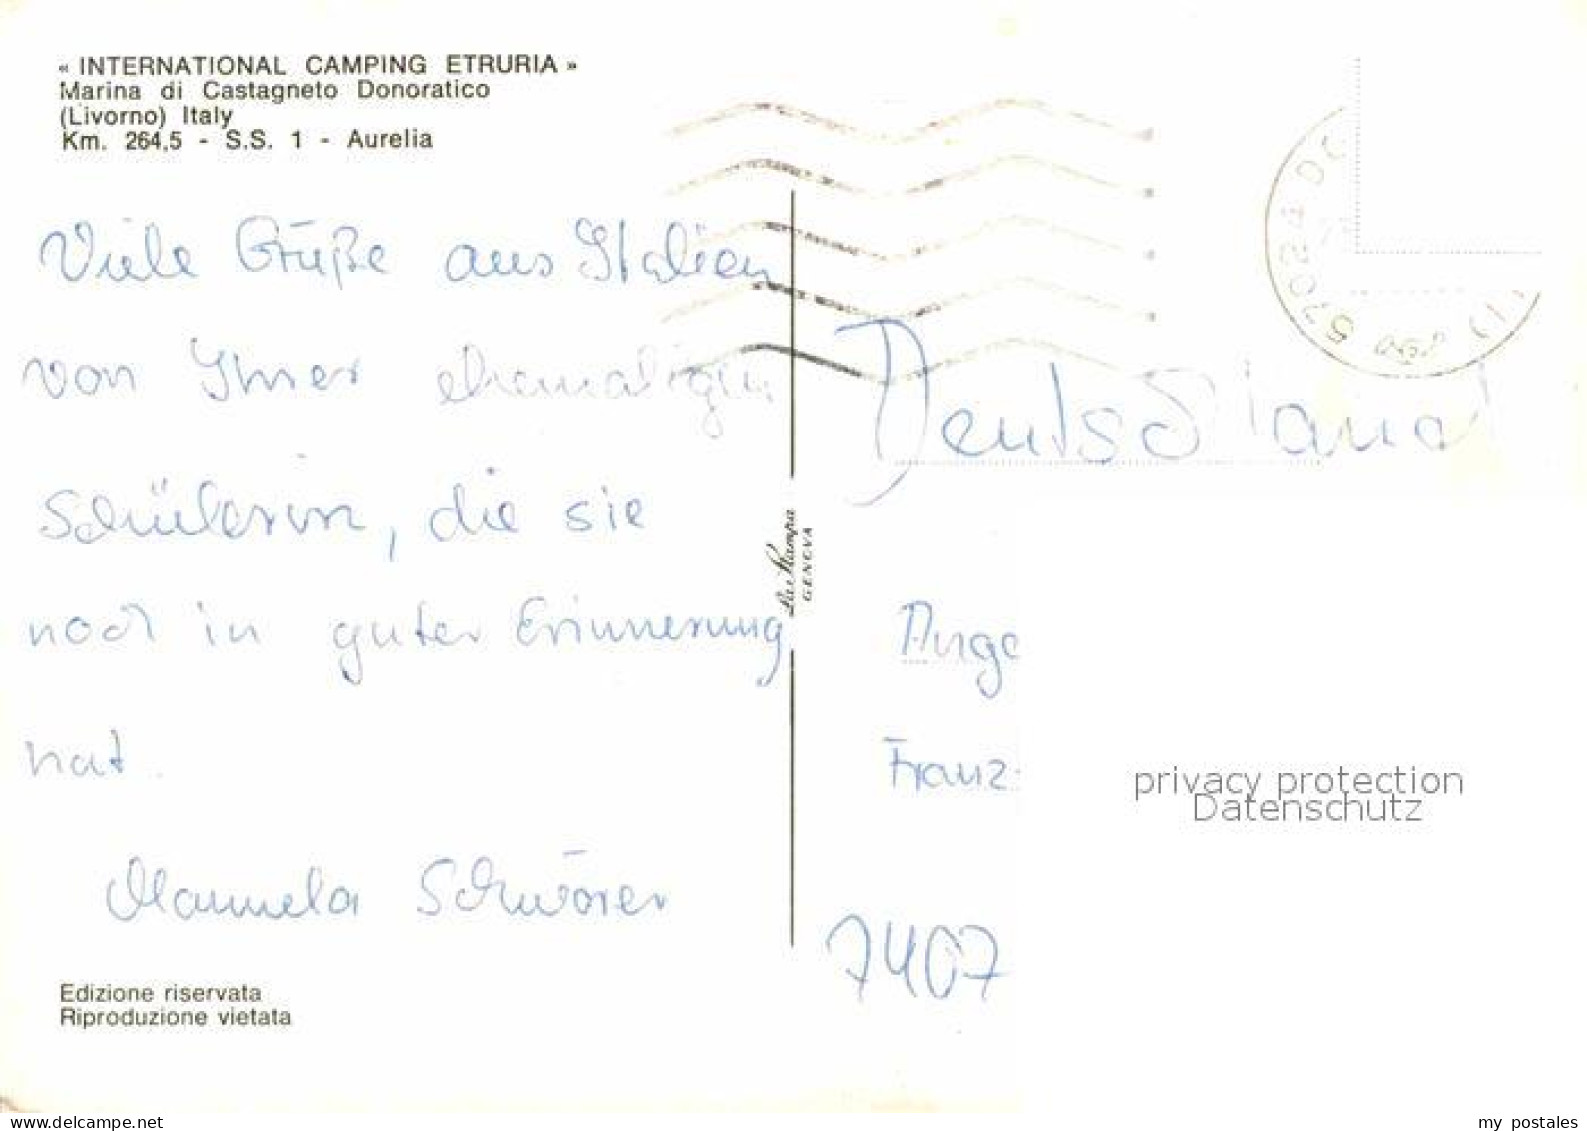 « INTERNATIONAL CAMPING ETRURIA »
Marina di Castagneto Donoratico
(Livorno) Italy
Km. 264,5 - S.S. 1 - Aurelia
Viele Grüße aus Italien
von Ihrer ehemaligen
Schülerin, die sie
noch in guter Erinnerung
hat.
Manuela Schwörer
Edizione riservata
Riproduzione vietata
La Stampa
GENOVA
57024 DO
Deutschland
Ange
Franz-
7407
privacy protection
Datenschutz
www.delcampe.net
my_postales